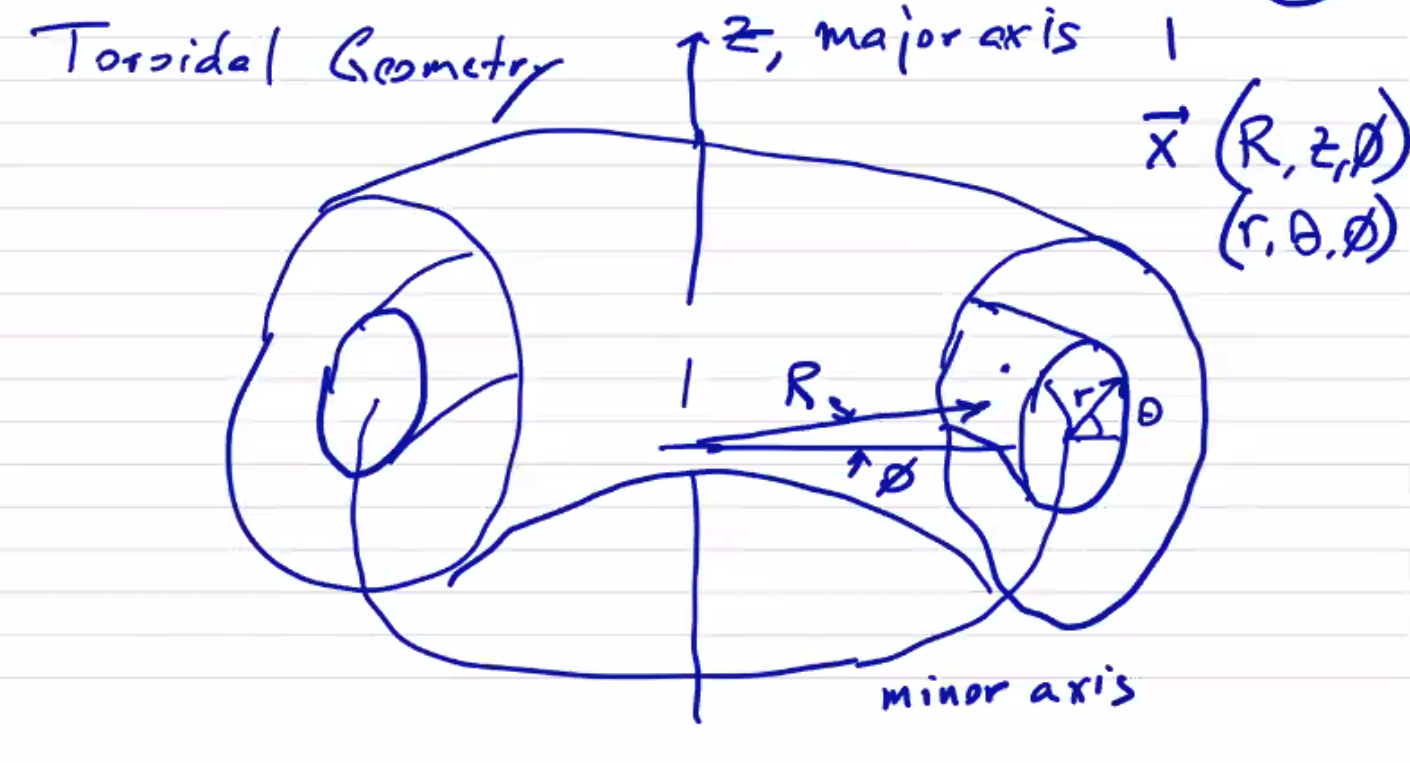 Toroidal Geometry
z, major axis
x⃗ (R, z, ø)
(r, θ, ø)
R
r
θ
ø
minor axis